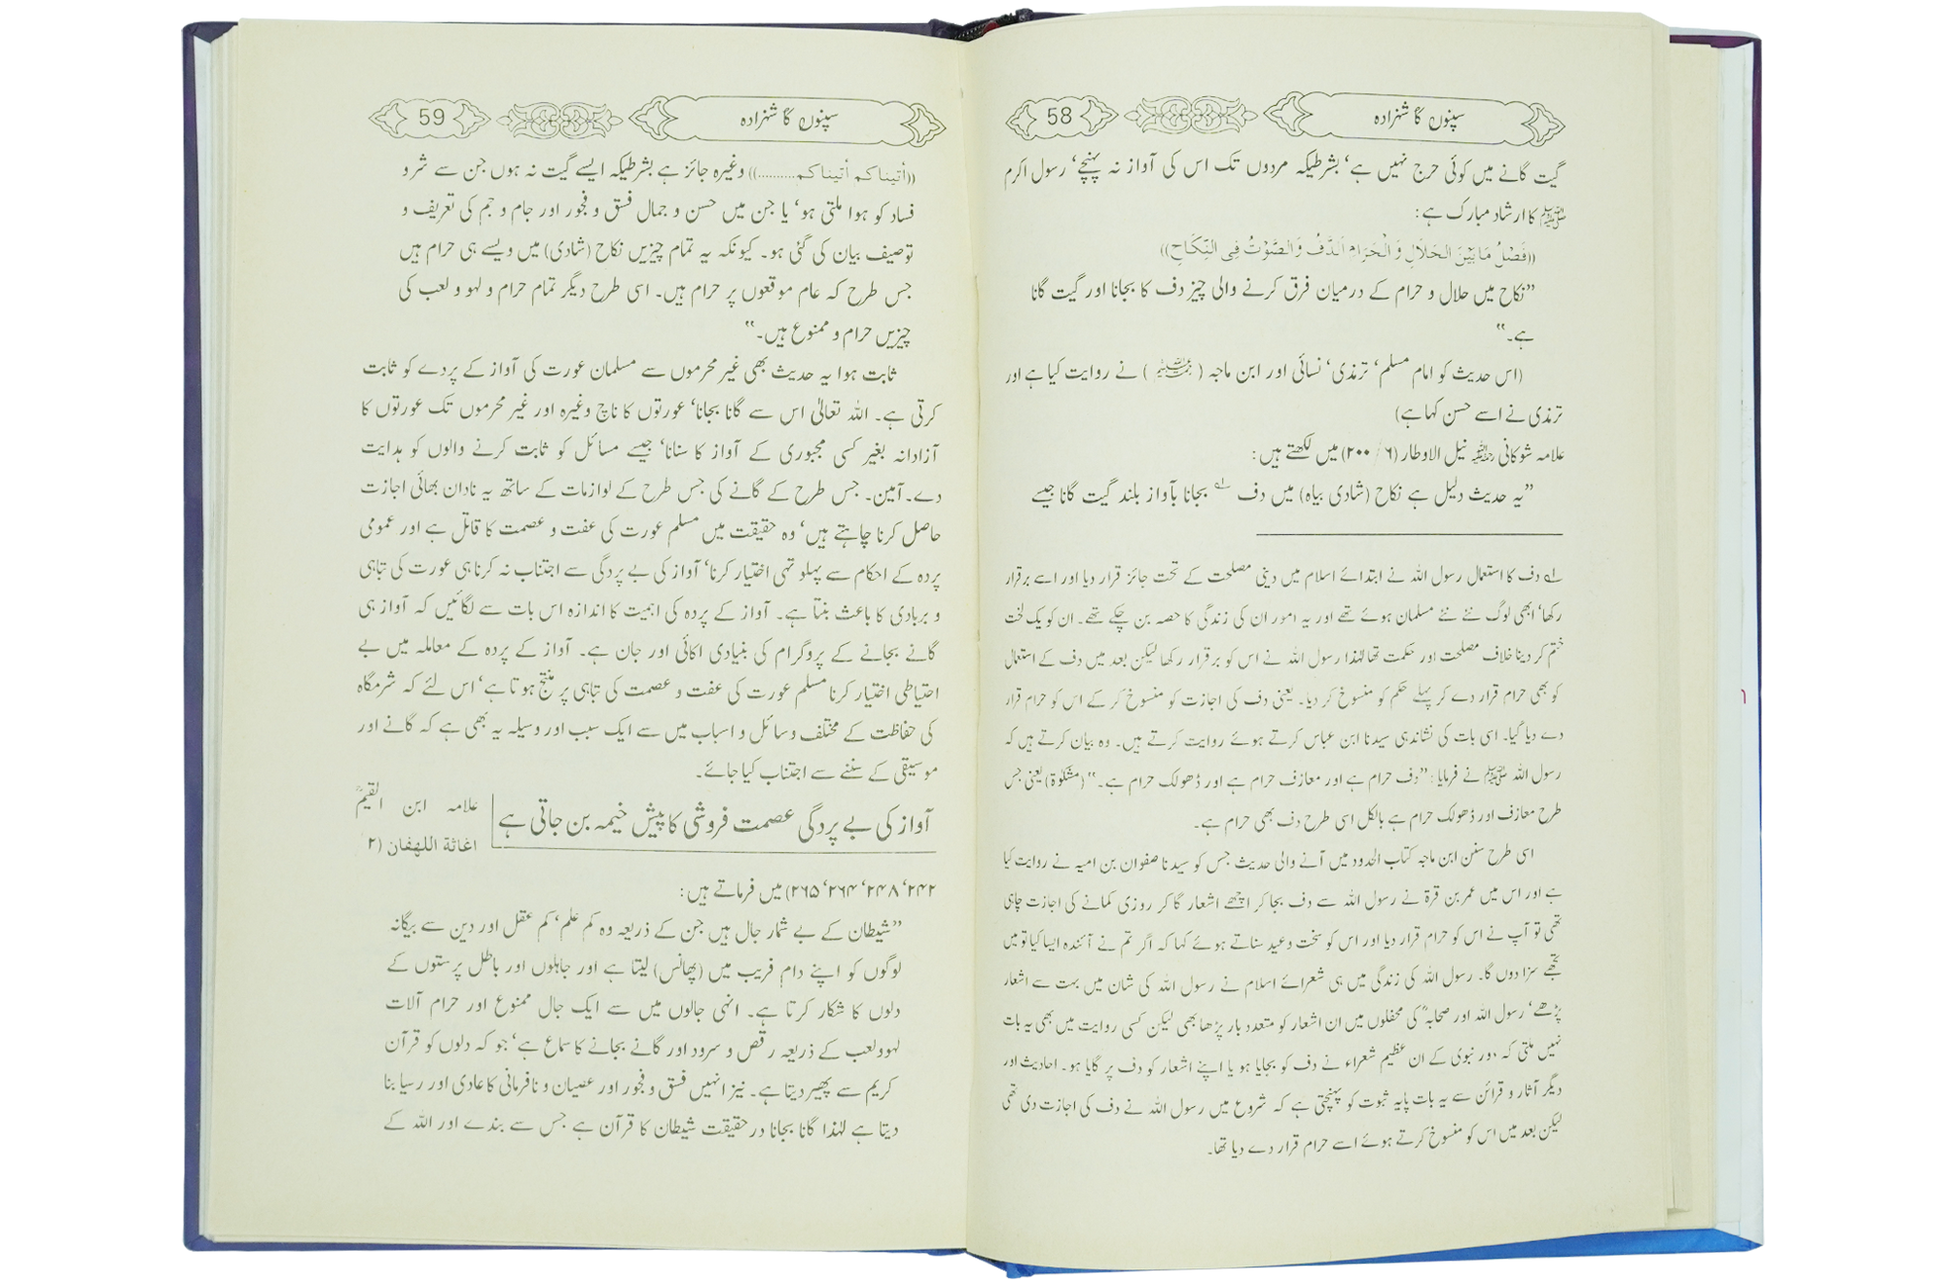 سپنوں کا شہزادہ 58
گیت گانے میں کوئی حرج نہیں ہے‘ بشرطیکہ مردوں تک اس کی آواز نہ پہنچے‘ رسول اکرم
ﷺ کا ارشاد مبارک ہے:
((فَصْلُ مَا بَيْنَ الْحَلَالِ وَ الْحَرَامِ اَلدَّفُ وَالصَّوْتُ فِى النِّكَاحِ))
”نکاح میں حلال و حرام کے درمیان فرق کرنے والی چیز دف کا بجانا اور گیت گانا
ہے۔“
(اس حدیث کو امام مسلم‘ ترمذی‘ نسائی اور ابن ماجہ ( ) نے روایت کیا ہے اور
ترمذی نے اسے حسن کہا ہے)
علامہ شوکانی نیل الاوطار (۶/ ۲۰۰) میں لکھتے ہیں:
”یہ حدیث دلیل ہے نکاح (شادی بیاہ) میں دف ۱؎ بجانا بآواز بلند گیت گانا جیسے
۱؎ دف کا استعمال رسول اللہ نے ابتدائے اسلام میں دینی مصلحت کے تحت جائز قرار دیا اور اسے برقرار
رکھا‘ ابھی لوگ نئے نئے مسلمان ہوئے تھے اور یہ امور ان کی زندگی کا حصہ بن چکے تھے۔ ان کو یک لخت
ختم کر دینا خلاف مصلحت اور حکمت تھا لہٰذا رسول اللہ نے اس کو برقرار رکھا لیکن بعد میں دف کے استعمال
کو بھی حرام قرار دے کر پہلے حکم کو منسوخ کر دیا۔ یعنی دف کی اجازت کو منسوخ کر کے اس کو حرام قرار
دے دیا گیا۔ اسی بات کی نشاندہی سیدنا ابن عباس کرتے ہوئے روایت کرتے ہیں۔ وہ بیان کرتے ہیں کہ
رسول اللہ ﷺ نے فرمایا: ”دف حرام ہے اور معازف حرام ہے اور ڈھولک حرام ہے۔“ (مشکوٰۃ) یعنی جس
طرح معازف اور ڈھولک حرام ہے بالکل اسی طرح دف بھی حرام ہے۔
اسی طرح سنن ابن ماجہ کتاب الحدود میں آنے والی حدیث جس کو سیدنا صفوان بن امیہ نے روایت کیا
ہے اور اس میں عمر بن قرۃ نے رسول اللہ سے دف بجا کر اچھے اشعار گا کر روزی کمانے کی اجازت چاہی
تھی تو آپ نے اس کو حرام قرار دیا اور اس کو سخت وعید سناتے ہوئے کہا کہ اگر تم نے آئندہ ایسا کیا تو میں
تجھے سزا دوں گا۔ رسول اللہ کی زندگی میں ہی شعرائے اسلام نے رسول اللہ کی شان میں بہت سے اشعار
پڑھے‘ رسول اللہ اور صحابہؓ کی محفلوں میں ان اشعار کو متعدد بار پڑھا بھی لیکن کسی روایت میں بھی یہ بات
نہیں ملتی کہ دور نبوی کے ان عظیم شعراء نے دف کو بجایا ہو یا اپنے اشعار کو دف پر گایا ہو۔ احادیث اور
دیگر آثار و قرائن سے یہ بات پایہ ثبوت کو پہنچتی ہے کہ شروع میں رسول اللہ نے دف کی اجازت دی تھی
لیکن بعد میں اس کو منسوخ کرتے ہوئے اسے حرام قرار دے دیا تھا۔
سپنوں کا شہزادہ 59
((اتيناكم اتيناكم..........)) وغیرہ جائز ہے بشرطیکہ ایسے گیت نہ ہوں جن سے شر و
فساد کو ہوا ملتی ہو‘ یا جن میں حسن و جمال فسق و فجور اور جام و جم کی تعریف و
توصیف بیان کی گئی ہو۔ کیونکہ یہ تمام چیزیں نکاح (شادی) میں ویسے ہی حرام ہیں
جس طرح کہ عام موقعوں پر حرام ہیں۔ اسی طرح دیگر تمام حرام و لہو و لعب کی
چیزیں حرام و ممنوع ہیں۔“
ثابت ہوا یہ حدیث بھی غیر محرموں سے مسلمان عورت کی آواز کے پردے کو ثابت
کرتی ہے۔ اللہ تعالیٰ اس سے گانا بجانا‘ عورتوں کا ناچ وغیرہ اور غیر محرموں تک عورتوں کا
آزادانہ بغیر کسی مجبوری کے آواز کا سنانا‘ جیسے مسائل کو ثابت کرنے والوں کو ہدایت
دے۔ آمین۔ جس طرح کے گانے کی جس طرح کے لوازمات کے ساتھ یہ نادان بھائی اجازت
حاصل کرنا چاہتے ہیں‘ وہ حقیقت میں مسلم عورت کی عفت و عصمت کا قاتل ہے اور عمومی
پردہ کے احکام سے پہلو تہی اختیار کرنا‘ آواز کی بے پردگی سے اجتناب نہ کرنا ہی عورت کی تباہی
و بربادی کا باعث بنتا ہے۔ آواز کے پردہ کی اہمیت کا اندازہ اس بات سے لگائیں کہ آواز ہی
گانے بجانے کے پروگرام کی بنیادی اکائی اور جان ہے۔ آواز کے پردہ کے معاملہ میں بے
احتیاطی اختیار کرنا مسلم عورت کی عفت و عصمت کی تباہی پر منتج ہوتا ہے‘ اس لئے کہ شرمگاہ
کی حفاظت کے مختلف وسائل و اسباب میں سے ایک سبب اور وسیلہ یہ بھی ہے کہ گانے اور
موسیقی کے سننے سے اجتناب کیا جائے۔
آواز کی بے پردگی عصمت فروشی کا پیش خیمہ بن جاتی ہے
علامہ ابن القیمؒ
اغاثة اللهفان (۲
۲۴۲‘ ۲۴۸‘ ۲۶۴‘ ۲۶۵) میں فرماتے ہیں:
”شیطان کے بے شمار جال ہیں جن کے ذریعہ وہ کم علم‘ کم عقل اور دین سے بیگانہ
لوگوں کو اپنے دام فریب میں (پھانس) لیتا ہے اور جاہلوں اور باطل پرستوں کے
دلوں کا شکار کرتا ہے۔ انہی جالوں میں سے ایک جال ممنوع اور حرام آلات
لہوولعب کے ذریعہ رقص و سرود اور گانے بجانے کا سماع ہے‘ جو کہ دلوں کو قرآن
کریم سے پھیر دیتا ہے۔ نیز انہیں فسق و فجور اور عصیان و نافرمانی کا عادی اور رسیا بنا
دیتا ہے لہٰذا گانا بجانا درحقیقت شیطان کا قرآن ہے جس سے بندے اور اللہ کے